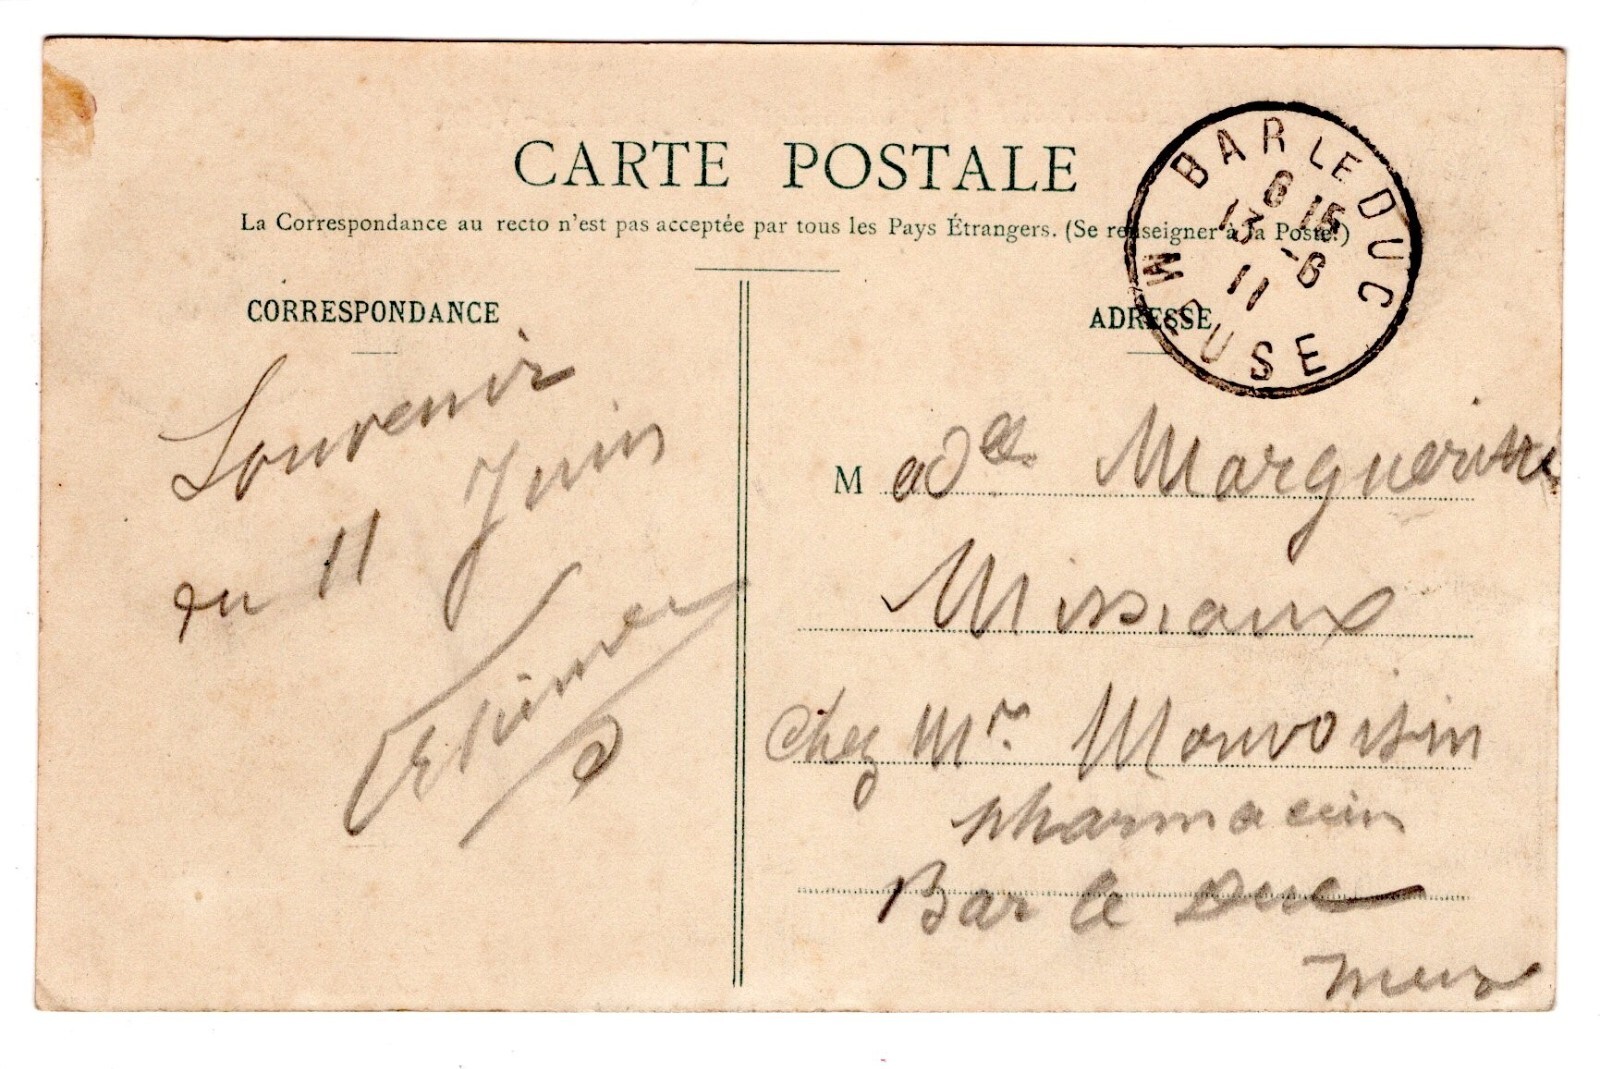 CARTE POSTALE
La Correspondance au recto n'est pas acceptée par tous les Pays Étrangers. (Se renseigner à la Poste.)
CORRESPONDANCE
Souvenir
du 11 Juin
ADRESSE
BAR LE DUC
6 15
13 -6
11
MEUSE
M elle Marguerite
Missiaux
Chez Mr. Monvoisin
pharmacien
Bar le Duc
Meuse